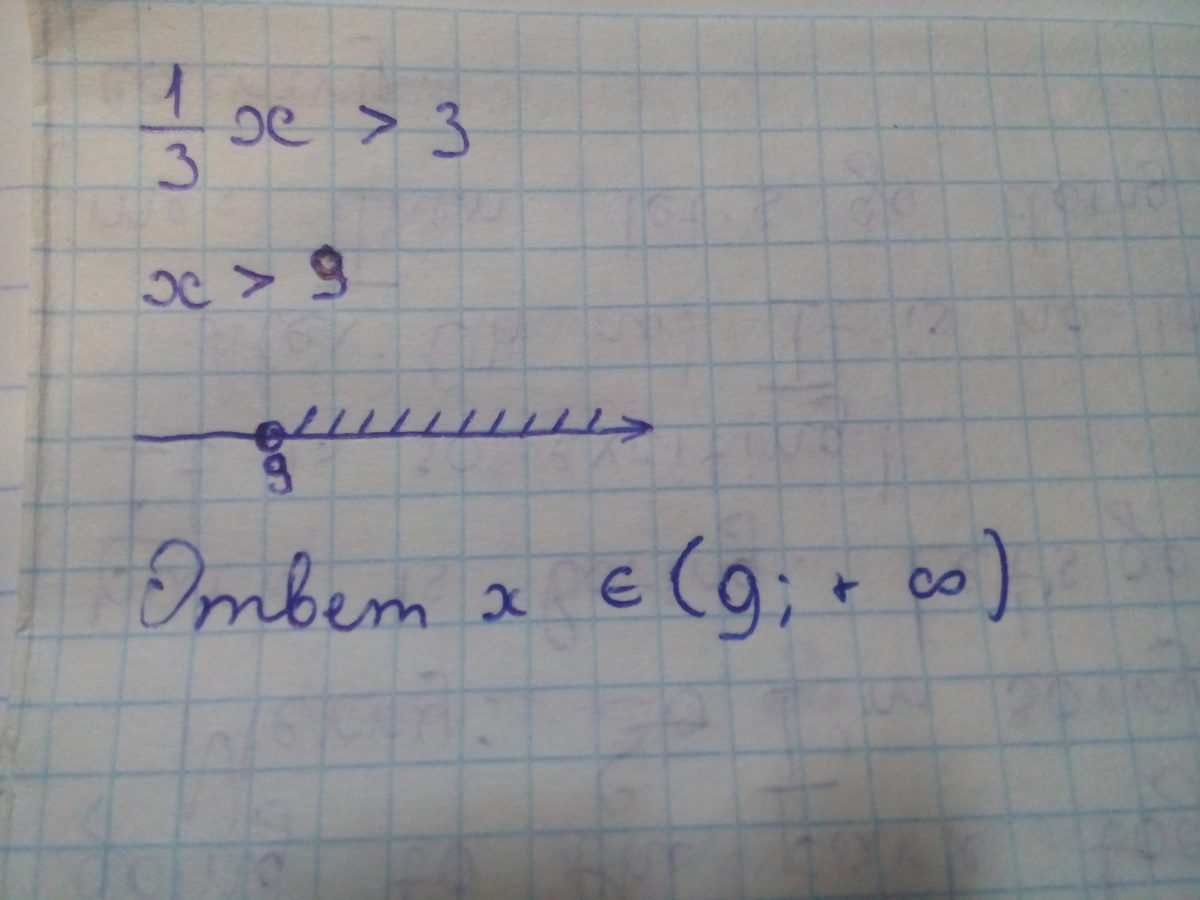 1/3 x > 3
x > 9
9
Ответ x ∈ (9; + ∞)